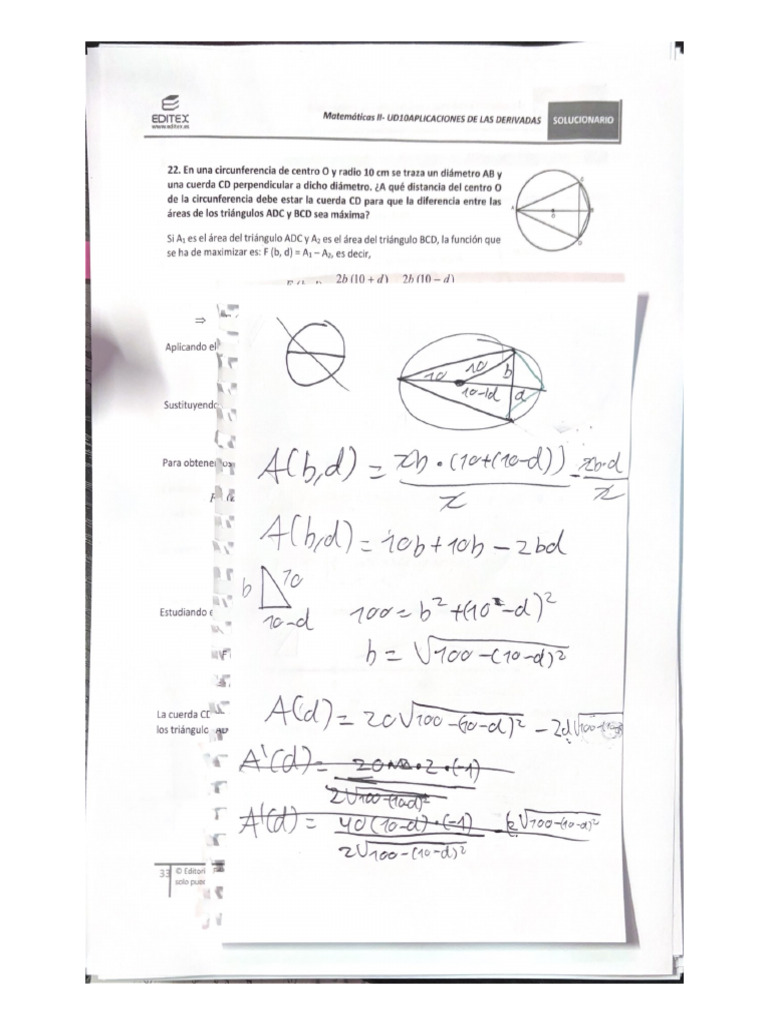 EDITEX
www.editex.es
Matemáticas II- UD10APLICACIONES DE LAS DERIVADAS
SOLUCIONARIO
22. En una circunferencia de centro O y radio 10 cm se traza un diámetro AB y
una cuerda CD perpendicular a dicho diámetro. ¿A qué distancia del centro O
de la circunferencia debe estar la cuerda CD para que la diferencia entre las
áreas de los triángulos ADC y BCD sea máxima?
Si A₁ es el área del triángulo ADC y A₂ es el área del triángulo BCD, la función que
se ha de maximizar es: F (b, d) = A₁ – A₂, es decir,
2b (10 + d) 2b (10 – d)
⇒
Aplicando el
10 10 b
10-d d
Sustituyendo
Para obtener
A(b,d) = 2b·(10+(10-d))/2 - 2b·d/2
A(b,d) = 10b+10b-2bd
b 10
10-d
100 = b²+(10-d)²
Estudiando
b = √100-(10-d)²
La cuerda CD
los triángulo
A(d) = 20√100-(10-d)² - 2d√100-(10-d)²
A'(d) = 20·2·(-1)
2√100-(10-d)²
A'(d) = 40(10-d)·(-1)/2√100-(10-d)² - (2√100-(10-d)²
33
© Editori
solo pue